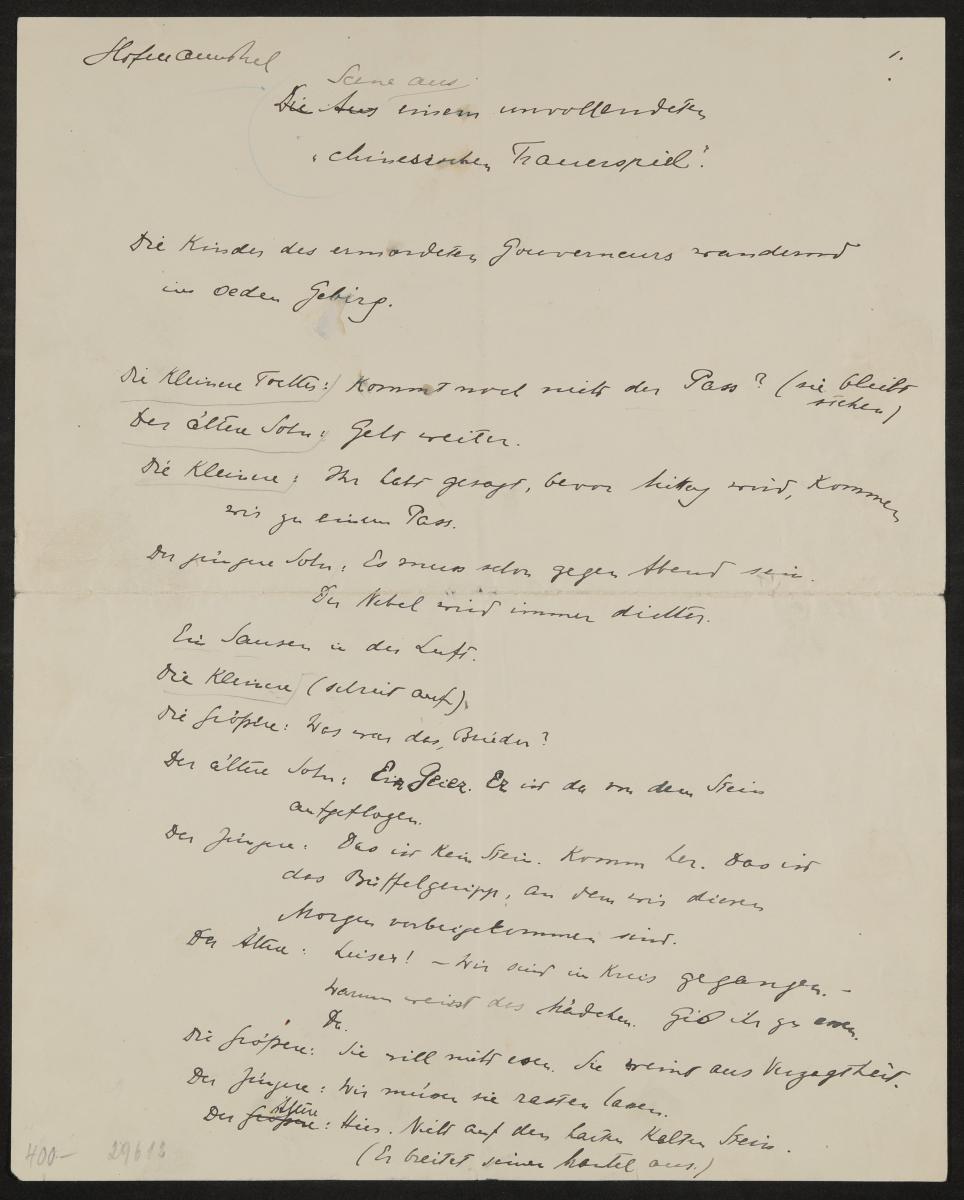 Hofmannsthal
1.
Scene aus
Die Aus einem unvollendeten
"chinesischen Trauerspiel".
Die Kinder des ermordeten Gouverneurs wandernd
im oeden Gebirg.
Die Kleinere Tochter: Kommt noch nicht der Pass? (sie bleibt
stehen)
Der ältere Sohn: Geht weiter.
Die Kleinere: Ihr habt gesagt, bevor Mittag wird, kommen
wir zu einem Pass.
Der jüngere Sohn: Es muss schon gegen Abend sein.
Der Nebel wird immer dichter.
Ein Sausen in der Luft.
Die Kleinere (schreit auf)
Die Größere: Was war das, Brüder?
Der ältere Sohn: Ein Geier. Er ist da von dem Stein
aufgeflogen.
Der Jüngere: Das ist kein Stein. Komm her. Das ist
das Büffelgeripp, an dem wir diesen
Morgen vorbeigekommen sind.
Der Ältere: Leiser! – Wir sind im Kreis gegangen. –
Warum weint das Mädchen. Gib ihr zu essen.
Du.
Die Größere: Sie will nicht essen. Sie weint aus Verzagtheit.
Der Jüngere: Wir müssen sie rasten lassen.
Ältere
Der Größere: Hier. Nicht auf den harten kalten Stein.
(Er breitet seinen Mantel aus.)
400– 29613